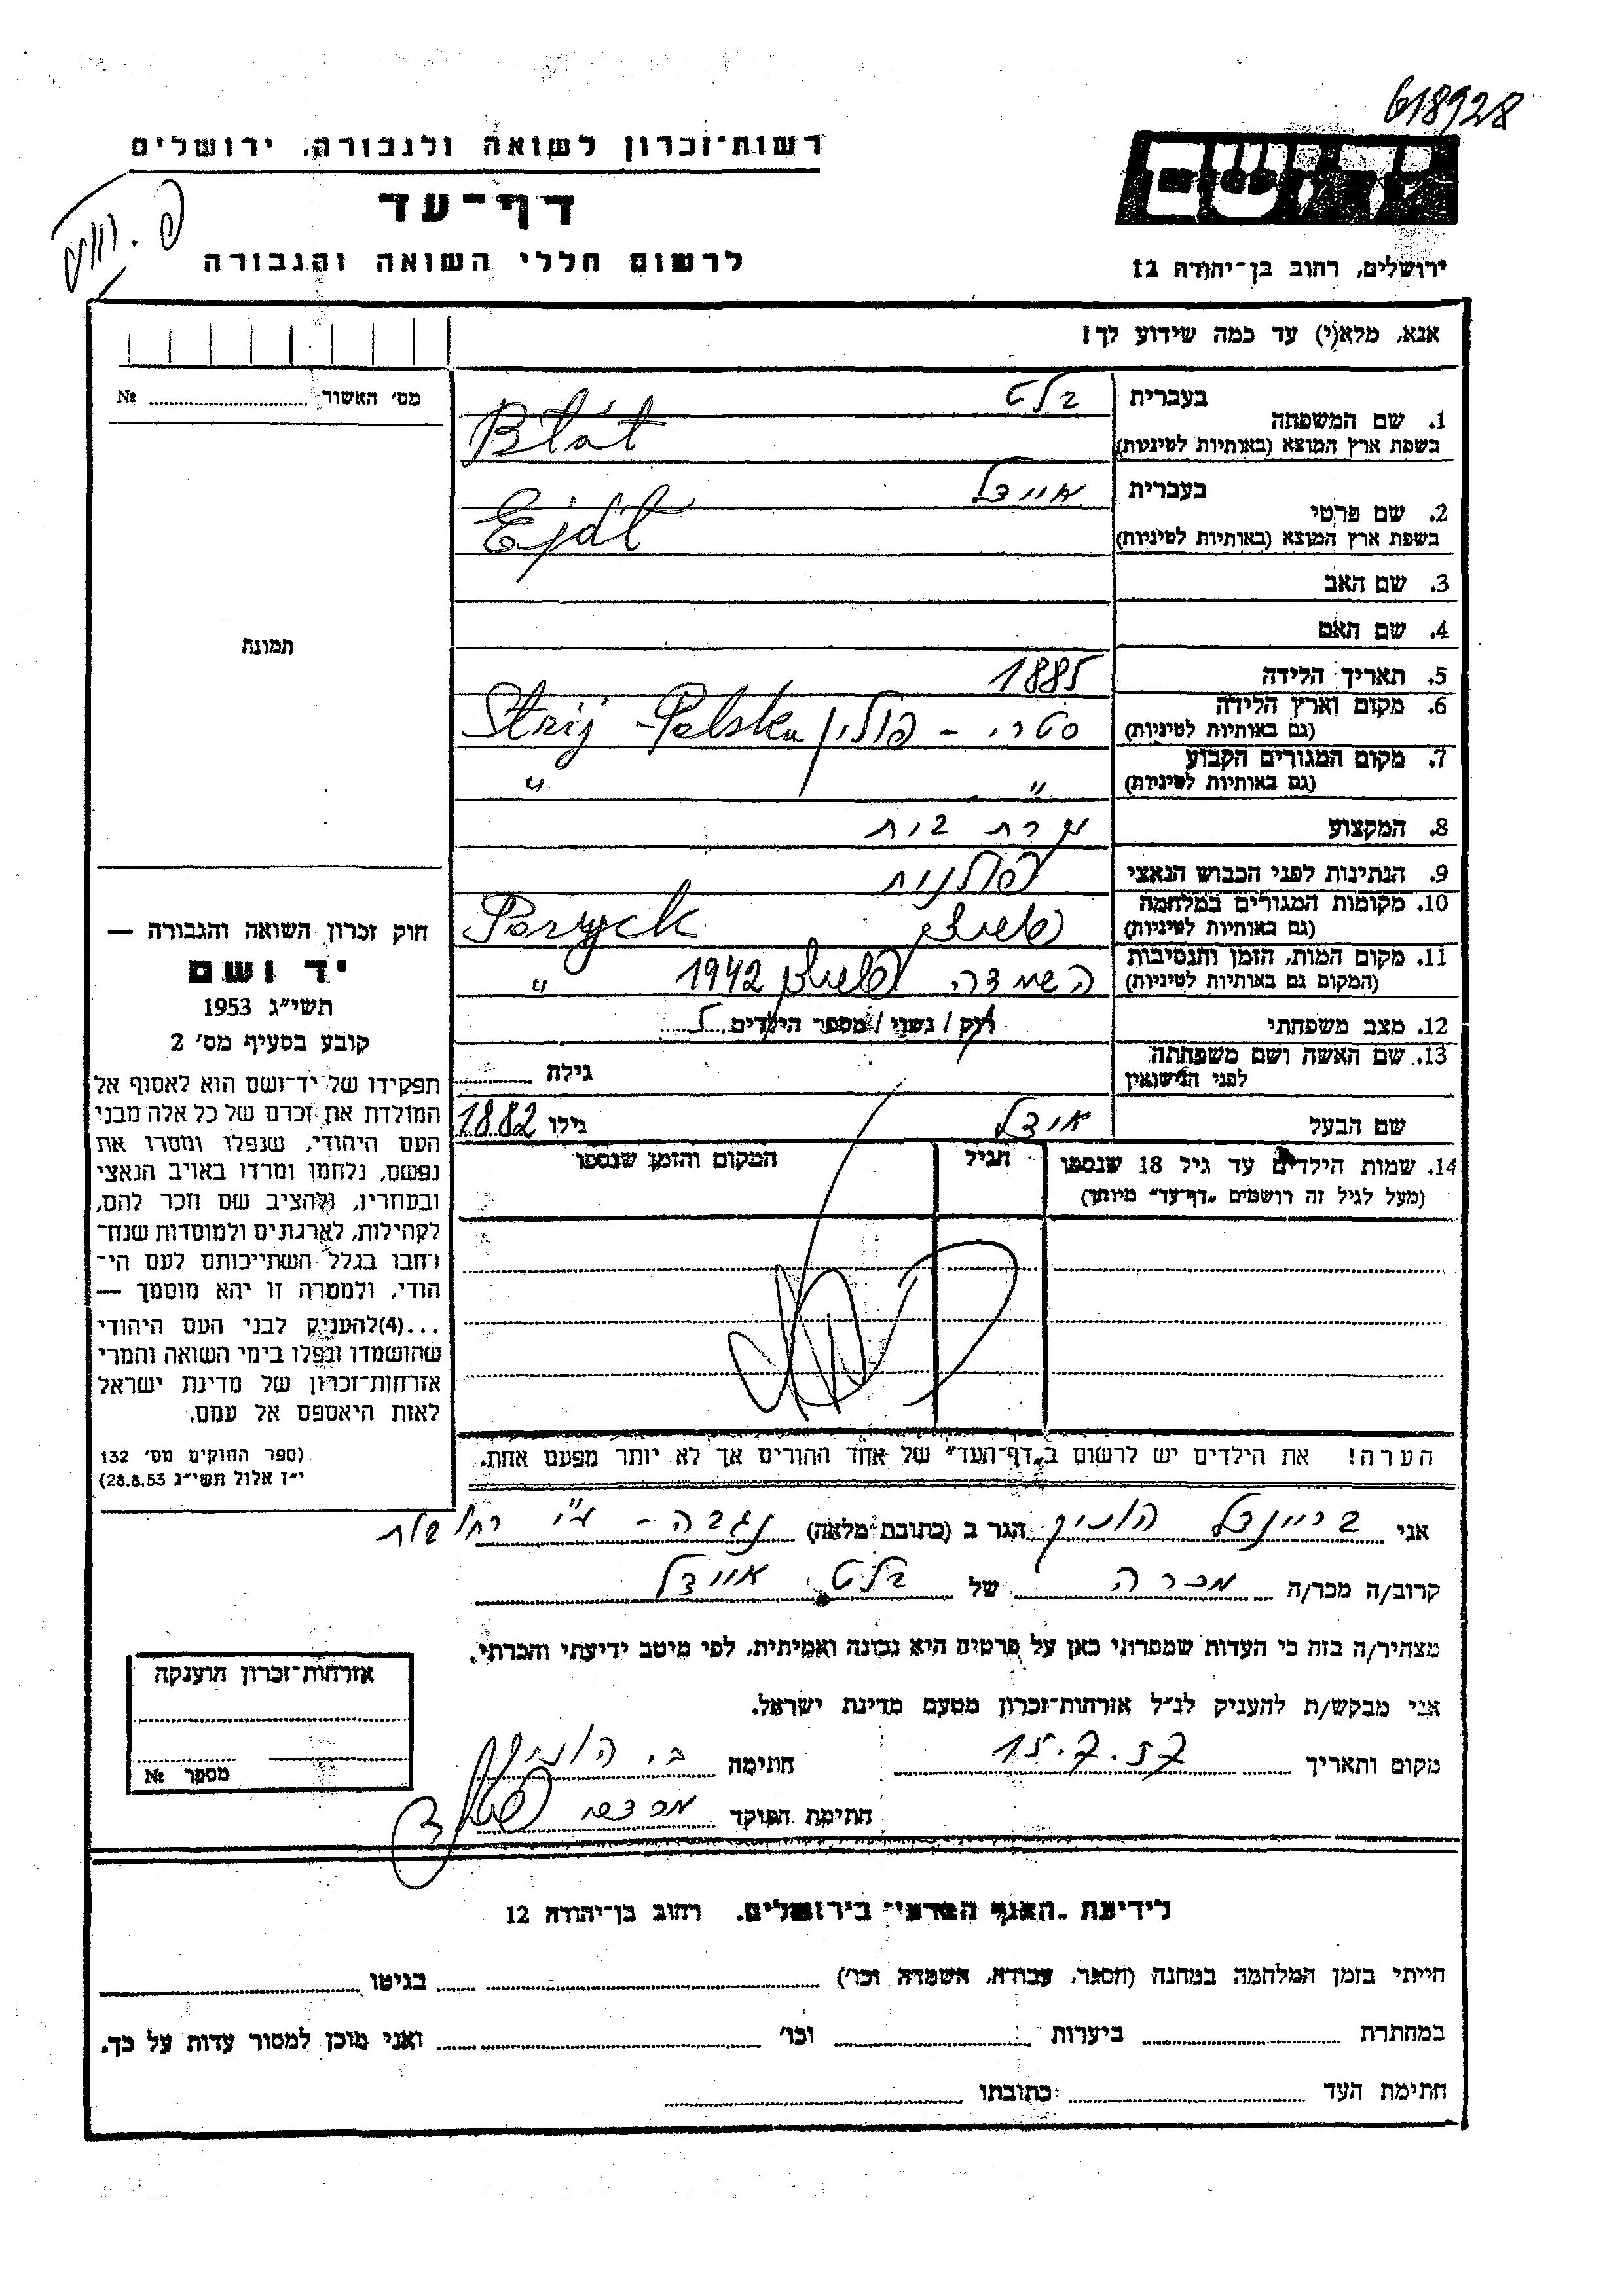 618928
רשות־זכרון לשואה ולגבורה, ירושלים
דף־עד
לרשום חללי השואה והגבורה
יד ושם
ירושלים, רחוב בן־יהודה 12
אנא, מלא(י) עד כמה שידוע לך!
מס׳ האשור № 
בעברית בלט
1. שם המשפחה
בשפת ארץ המוצא (באותיות לטיניות) Błat
בעברית איידל
2. שם פרטי
בשפת ארץ המוצא (באותיות לטיניות) Ejdł
3. שם האב
4. שם האם
5. תאריך הלידה 1885
6. מקום וארץ הלידה סטרי - פולין Strij - Polska
(גם באותיות לטיניות)
7. מקום המגורים הקבוע " "
(גם באותיות לטיניות)
8. המקצוע עקרת בית
9. הנתינות לפני הכבוש הנאצי פולנית
10. מקומות המגורים במלחמה Poryck
(גם באותיות לטיניות)
11. מקום המות, הזמן והנסיבות השמדה 1942 "
(המקום גם באותיות לטיניות)
12. מצב משפחתי רוק / נשוי / מספר הילדים 5
13. שם האשה ושם משפחתה
לפני הנישואין גילה
שם הבעל אידל גילו 1882
14. שמות הילדים עד גיל 18 שנספו הגיל המקום והזמן שנספו
(מעל לגיל זה רושמים „דף־עד" מיוחד)
תמונה
חוק זכרון השואה והגבורה —
יד ושם
תשי״ג 1953
קובע בסעיף מס׳ 2
תפקידו של יד־ושם הוא לאסוף אל
המולדת את זכרם של כל אלה מבני
העם היהודי, שנפלו ומסרו את
נפשם, נלחמו ומרדו באויב הנאצי
ובעוזריו, ולהציב שם וזכר להם,
לקהילות, לארגונים ולמוסדות שנח־
רחבו בגלל השתייכותם לעם הי־
הודי, ולמטרה זו יהא מוסמך —
...(4)להעניק לבני העם היהודי
שהושמדו ונפלו בימי השואה והמרי
אזרחות־זכרון של מדינת ישראל
לאות היאספם אל עמם.
(ספר החוקים מס׳ 132
י״ז אלול תשי״ג 28.8.53)
הערה! את הילדים יש לרשום ב„דף־העד" של אחד ההורים אך לא יותר מפעם אחת.
אני בריינדל הוניק הגר ב (כתובת מלאה) נגבה - ע״י
קרוב/ה מכר/ה מכרה של בלט איידל
מצהיר/ה בזה כי העדות שמסרתי כאן על פרטיה היא נכונה ואמיתית, לפי מיטב ידיעתי והכרתי.
אני מבקש/ת להעניק לנ״ל אזרחות־זכרון מטעם מדינת ישראל.
מקום ותאריך 15.7.57 חתימה ב. הוניק
חתימת הפוקד
אזרחות־זכרון הוענקה
מספר №
לידיעת „האגף המדעי" בירושלים, רחוב בן־יהודה 12
הייתי בזמן המלחמה במחנה (הסגר, עבודה, השמדה וכו׳) בגיטו
במחתרת ביערות וכו׳ ואני מוכן למסור עדות על כך.
חתימת העד כתובתו: